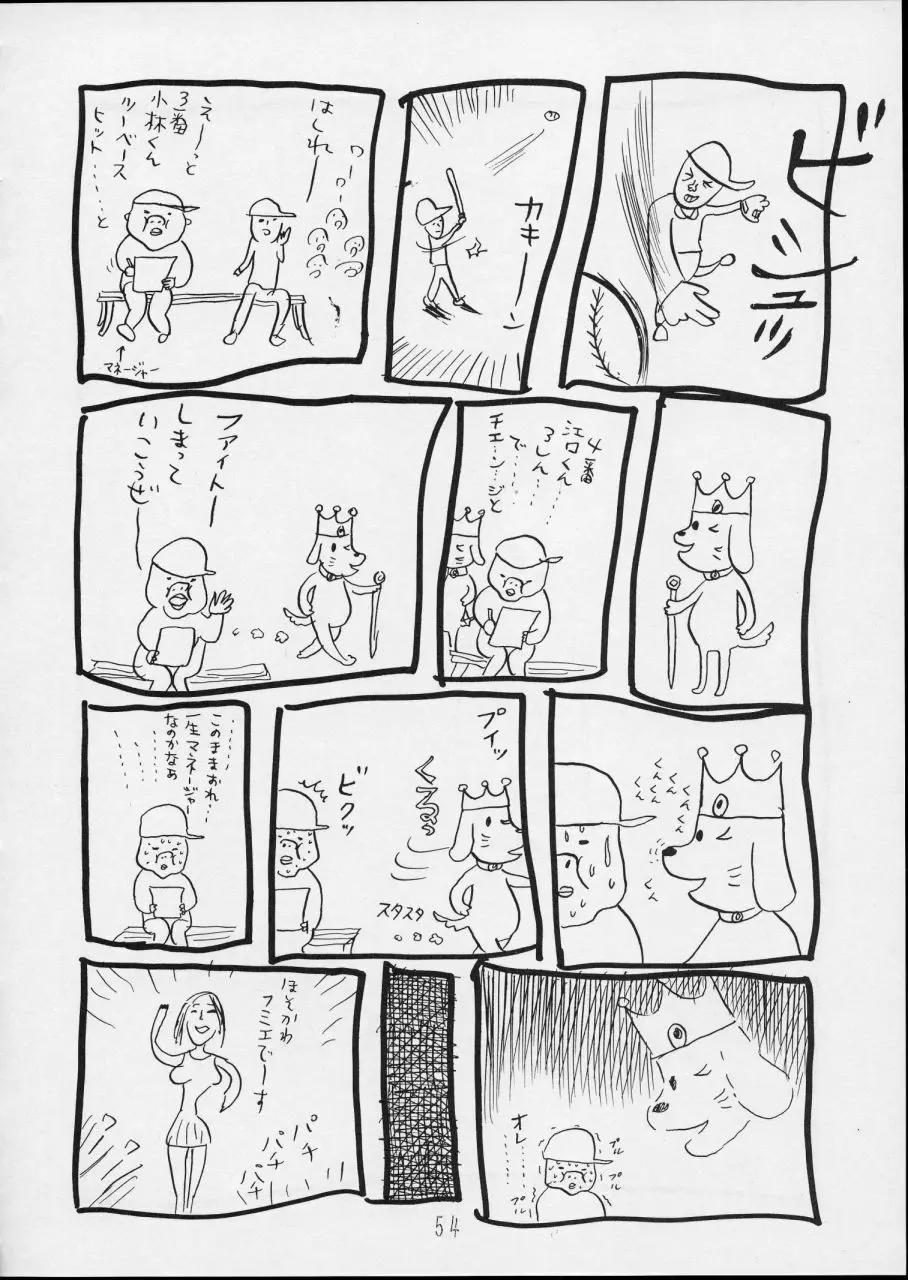 ビシュッ
カキーーン
はしれー
ワーワー
えーーっと
3番
小林くん
ツーベース
ヒット……と
マネージャー
4番
江口くん…
3しん……
で……
チェ…ン…ジと
ファイトー
しまって
いこうぜー
くんくん
くんくん
くんくん
くん
プイッ
くるっ
ビクッ
スタスタ
このままおれ…
一生マネージャー
なのかなあ
オレ……
プル
プル
プル
プル
ほそかわ
フミエでーす
パチ
パチ
パチ
54